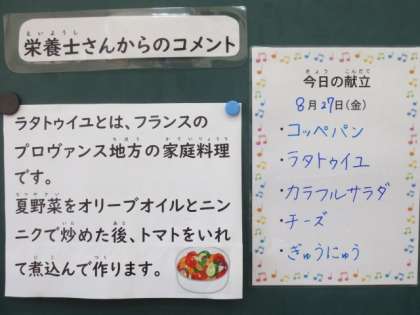 栄養士さんからのコメント
ラタトゥイユとは、フランスの
プロヴァンス地方の家庭料理
です。
夏野菜をオリーブオイルとニン
ニクで炒めた後、トマトをいれ
て煮込んで作ります。
今日の献立
8月27日(金)
・コッペパン
・ラタトゥイユ
・カラフルサラダ
・チーズ
・ぎゅうにゅう